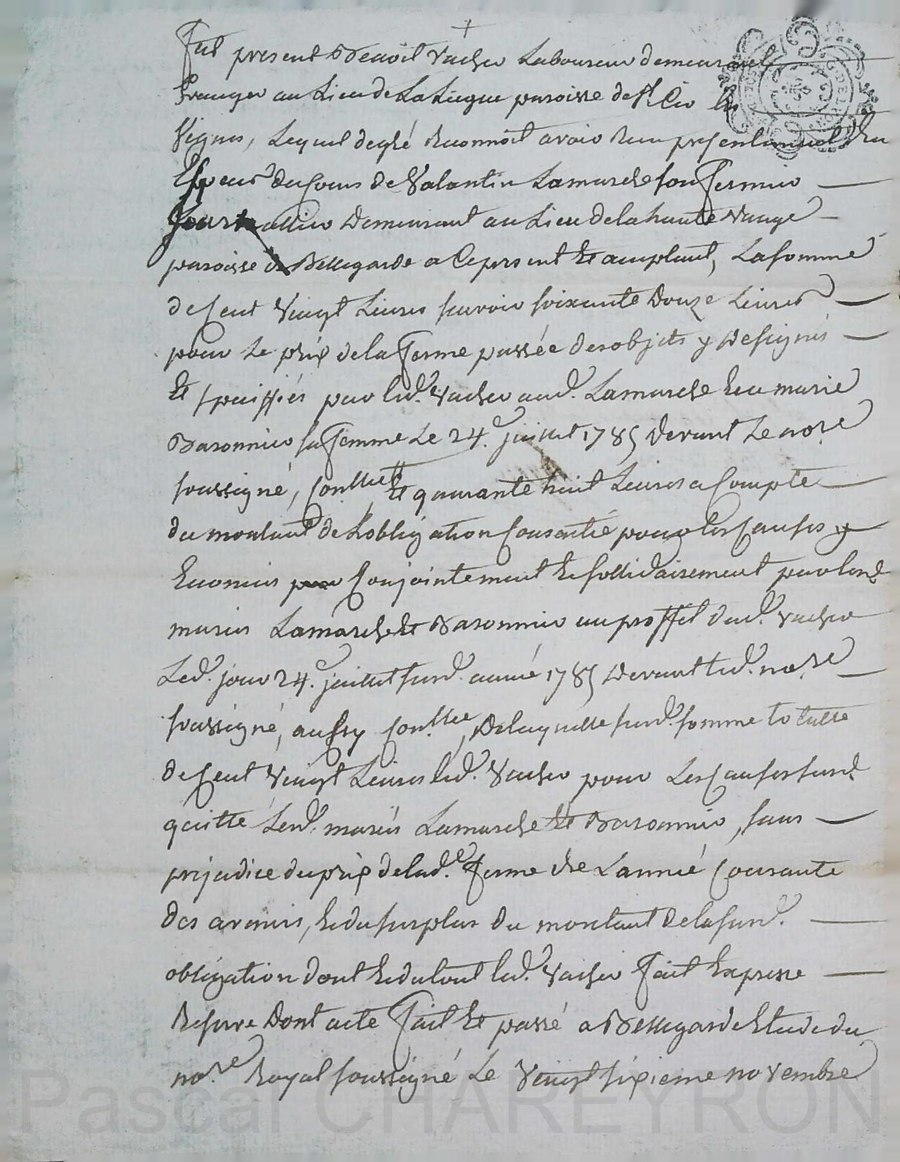 +
Fut present Benoit Vacher Laboureur demeurant
Granger au Lieu de La paroisse de St Cir les
Vignes, Lequel de gré Reconnoit avoir Reçu presentement En
Especes du Cours de Valantin Lamarche son Fermier
Demeurant au Lieu de la haute
paroisse de Bellegarde a Ce present Et acceptant, La somme
de Cent Vingt Livres savoir soixante Douze Livres
pour Le prix de la Ferme passée des objets y Designés
Et speciffiés par led. Vacher aud. Lamarche Et a marie
Baronnier sa Femme Le 24e. juillet 1785 Devant Le nore
soussigné, Et quarante huit Livres a Compte
du montant de L'obligation Consentie pour les Causes y
Enoncées Conjointement Et sollidairement par lesd.
mariés Lamarche Et Baronnier au proffit dud. Vacher
Led. jour 24e. juillet susd. année 1785 Devant led. nore
soussigné, aussy De laquelle susd. somme totalle
de Cent Vingt Livres led. Vacher pour Les Causes susd.
quitte Lesd. mariés Lamarche Et Baronnier, sans
prejudice du prix de lad. Ferme de L'année Courante
des avenirs, Et du surplus du montant de la susd.
obligation dont Et du tout led. Vacher Fait Expresse
Reserve Dont acte Fait Et passé a Bellegarde Etude du
nore Royal soussigné Le Vingt sixieme novembre
Pascal CHAREYRON